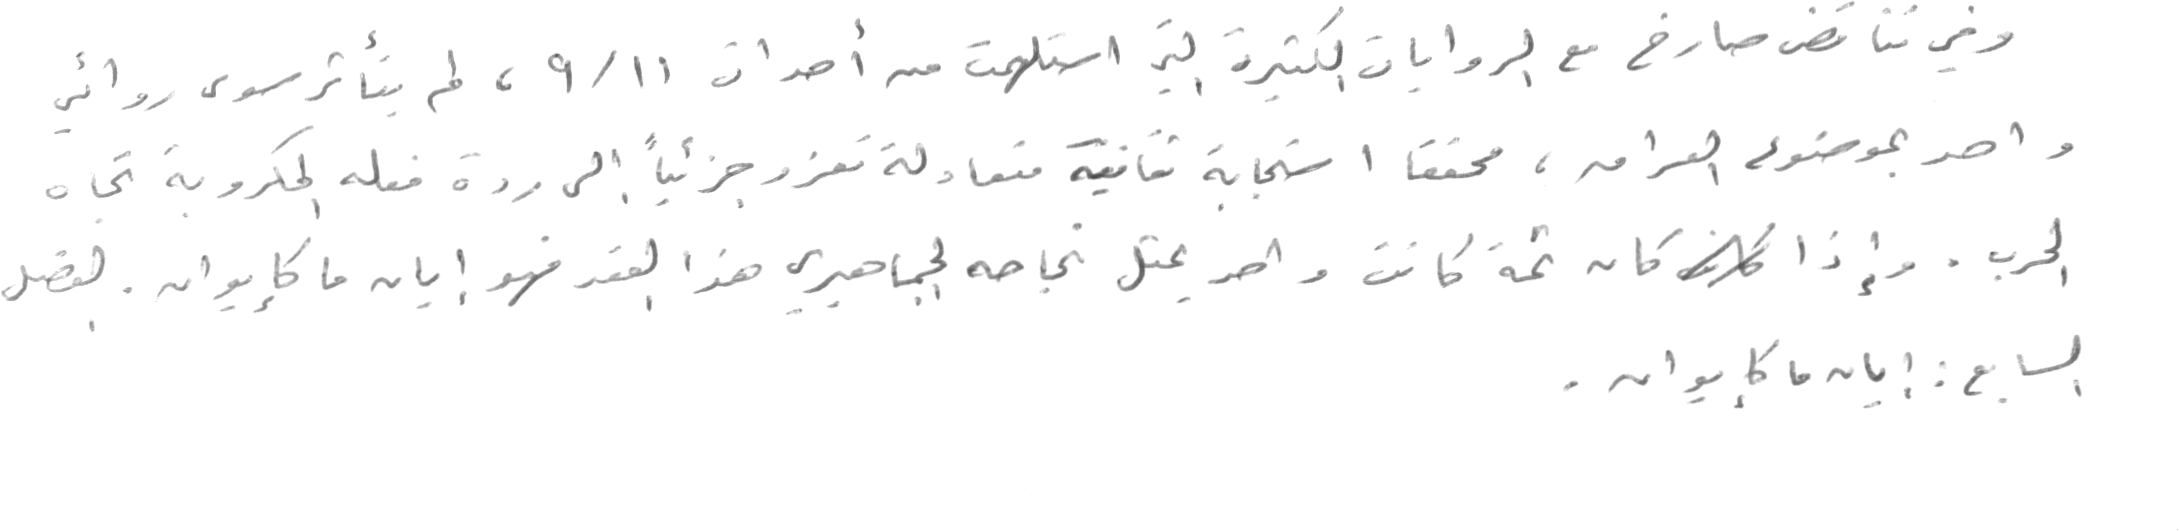 وفي تناقض صارخ مع الروايات الكثيرة التي استلهمت من أحداث ٩/١١ ، لم يتأثر سوى روائي
واحد بموضوع العراق ، محققا استجابة ثقافية متعادلة تعزو جزئياً إلى ردة فعله المكروبة تجاه
الحرب . وإذا كان ثمة كانت واحد يمثل نجاحه الجماهيري هذا العقد فهو إيان ماكإيوان . الفصل
السابع : إيان ماكإيوان .